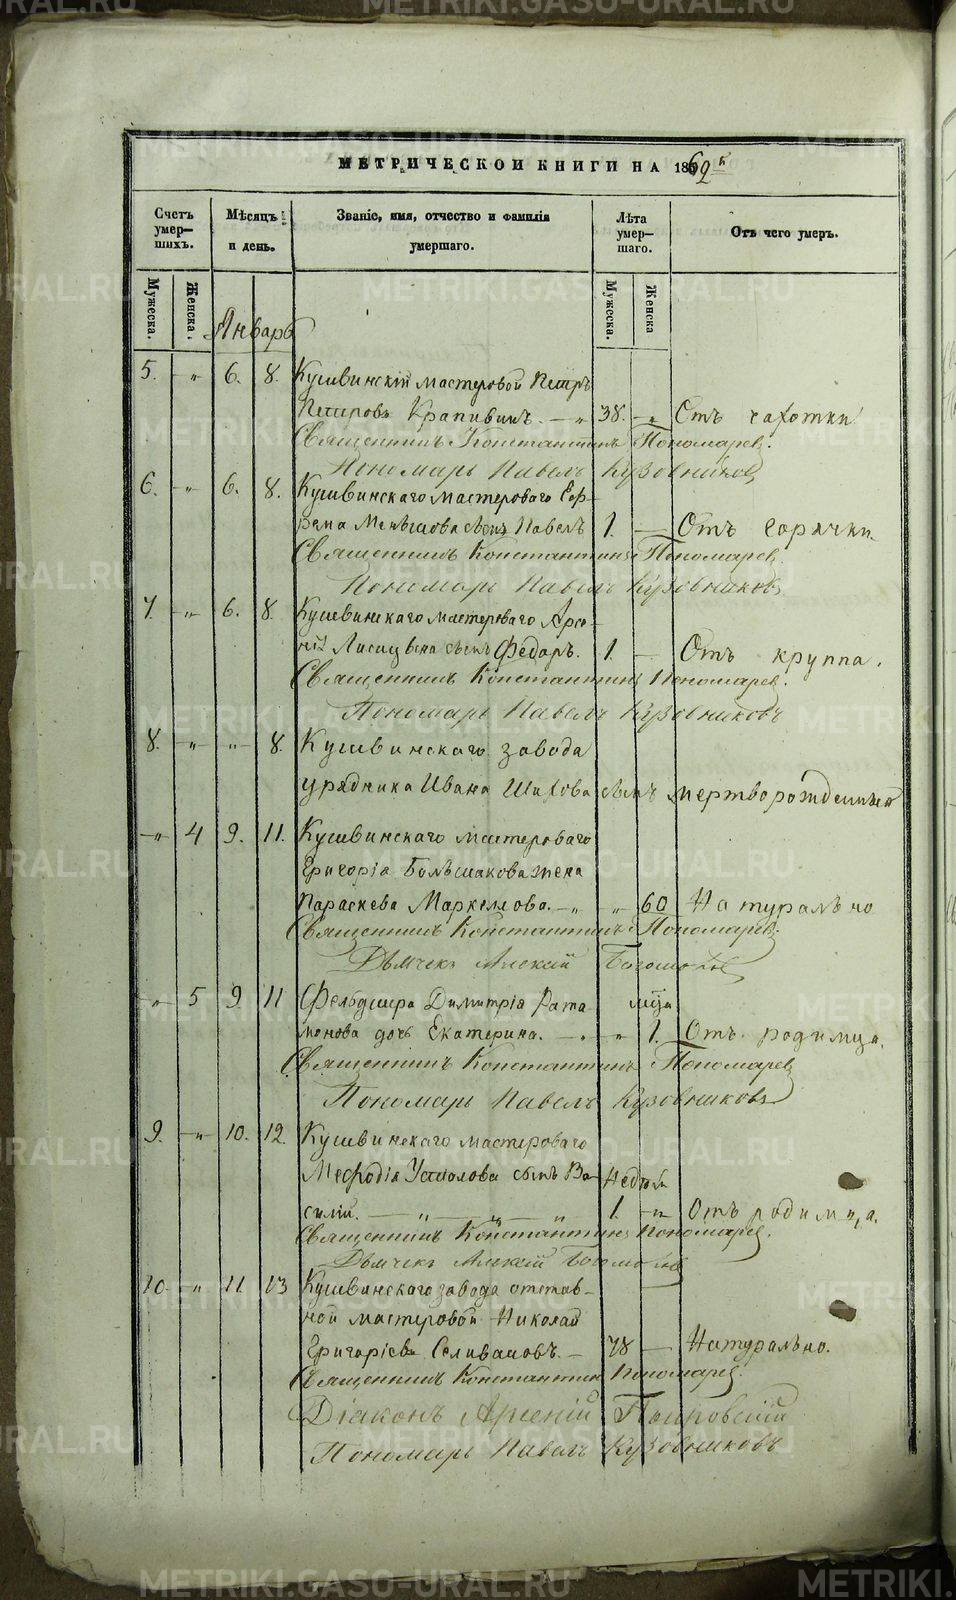 МЕТРИЧЕСКОЙ КНИГИ НА 1862й
Счетъ умер—шихъ. Мѣсяцъ и день. Званіе, имя, отчество и фамилія умершаго. Лѣта умер—шаго. Отъ чего умеръ.
Мужеска. Женска. Мужеска. Женска
Январь
5. „ 6. 8. Кушвинскій мастеровой Петръ
Петровъ Крапивинъ. — „ 38. „ Отъ чахотки
Священникъ Константинъ Пономаревъ.
Пономарь Павелъ Кузовниковъ
6. „ 6. 8. Кушвинскаго мастероваго Еф—
рема Меньшова сынъ Павелъ 1. — Отъ горячки.
Священникъ Константинъ Пономаревъ.
Пономарь Павелъ Кузовниковъ
7. „ 6. 8. Кушвинскаго мастероваго Арсе—
нія Лисицына сынъ Федоръ. 1. — Отъ круппа.
Священникъ Константинъ Пономаревъ.
Пономарь Павелъ Кузовниковъ
8. „ „ 8. Кушвинскаго завода
урядника Ивана Шихова сынъ мертворожденный
„ 4 9. 11. Кушвинскаго мастероваго
Григорія Большакова жена
Параскева Маркелова. — „ „ 60 Натурально
Священникъ Константинъ Пономаревъ.
Дьячекъ Алексій Богомоловъ
„ 5 9 11 Фельдшера Димитрія Рата—
монова дочь Екатерина. — „ „ 1. Отъ родимца.
Священникъ Константинъ Пономаревъ
Пономарь Павелъ Кузовниковъ
9. „ 10. 12. Кушвинскаго мастероваго
Мефодія сынъ Ва— недѣли
силій. — „ — „ — „ 1. „ Отъ родимца.
Священникъ Константинъ Пономаревъ.
Дьячекъ Алексій Богомоловъ
10. „ 11. 13 Кушвинскаго завода отстав—
ной мастеровой Николай
Григоріевъ Селивановъ. — 78 — Натурально.
Священникъ Константинъ Пономаревъ.
Діаконъ Арсеній
Пономарь Павелъ Кузовниковъ
METRIKI.GASO-URAL.RU